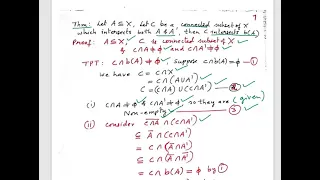 7
Thm: Let A ⊆ X, Let C be a connected subset of X
which intersects both A & A', then C intersects b(A)
Proof: A ⊆ X, C is connected subset of X
& C∩A ≠ ϕ and C∩A' ≠ ϕ
TPT: C∩b(A) ≠ ϕ, suppose C∩b(A) = ϕ —①
we have C = C∩X
= C∩(A∪A')
C = (C∩A) ∪ (C∩A') —②
(i) C∩A ≠ ϕ & C∩A' ≠ ϕ, so they are (given)
Non-empty —③
(ii) consider C∩A ∩ (C∩A')
⊆ A ∩ (C∩A')
= C∩(A∩A')
⊆ C∩(A∩A')
= C∩b(A) = ϕ by ①